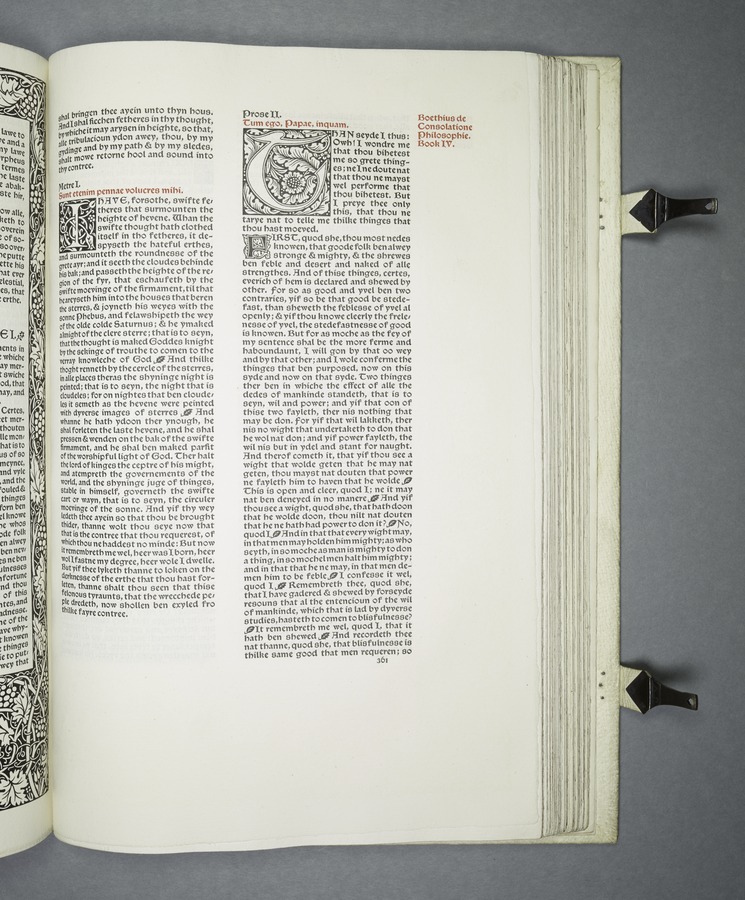 shal bringen thee ayein unto thyn hous.
And I shal ficchen fetheres in thy thought,
by whiche it may arysen in heighte, so that,
alle tribulacioun ydon awey, thou, by my
gydinge and by my path & by my sledes,
shalt mowe retorne hool and sound into
thy contree.
Metre I.
Sunt etenim pennae volucres mihi.
I HAVE, forsothe, swifte fe-
theres that surmounten the
heighte of hevene. Whan the
swifte thought hath clothed
itself in tho fetheres, it de-
spyseth the hateful erthes,
and surmounteth the roundnesse of the
grete ayr; and it seeth the cloudes behinde
his bak; and passeth the heighte of the re-
gion of the fyr, that eschaufeth by the
swifte moevinge of the firmament, til that
he areyseth him into the houses that beren
the sterres, & joyneth his weyes with the
sonne Phebus, and felawshipeth the wey
of the olde colde Saturnus; & he ymaked
a knight of the clere sterre; that is to seyn,
that the thought is maked Goddes knight
by the sekinge of trouthe to comen to the
verray knowleche of God. And thilke
thoght renneth by the cercle of the sterres,
in alle places theras the shyninge night is
peinted; that is to seyn, the night that is
cloudeles; for on nightes that ben cloude-
les it semeth as the hevene were peinted
with dyverse images of sterres. And
whanne he hath ydoon ther ynough, he
shal forleten the laste hevene, and he shal
pressen & wenden on the bak of the swifte
firmament, and he shal ben maked parfit
of the worshipful light of God. Ther halt
the lord of kinges the ceptre of his might,
and atempreth the governements of the
world, and the shyninge juge of thinges,
stable in himself, governeth the swifte
cart or wayn, that is to seyn, the circuler
moevinge of the sonne. And yif thy wey
ledeth thee ayein so that thou be brought
thider, thanne wolt thou seye now that
that is the contree that thou requerest, of
which thou ne haddest no minde: But now
it remembreth me wel, heer was I born, heer
wol I fastne my degree, heer wole I dwelle.
But yif thee lyketh thanne to loken on the
derknesse of the erthe that thou hast for-
leten, thanne shalt thou seen that thise
felonous tyraunts, that the wrecchede pe-
ple dredeth, now shollen ben exyled fro
thilke fayre contree.
Prose II.
Tum ego, Papae, inquam.
THAN seyde I thus:
Owh! I wondre me
that thou bihetest
me so grete thing-
es; ne I ne doute nat
that thou ne mayst
wel performe that
thou bihetest. But
I preye thee only
this, that thou ne
tarye nat to telle me thilke thinges that
thou hast moeved.
FIRST, quod she, thou most nedes
knowen, that goode folk ben alwey
stronge & mighty, & the shrewes
ben feble and desert and naked of alle
strengthes. And of thise thinges, certes,
everich of hem is declared and shewed by
other. For so as good and yvel ben two
contraries, yif so be that good be stede-
fast, than sheweth the feblesse of yvel al
openly; & yif thou knowe cleerly the frele-
nesse of yvel, the stedefastnesse of good
is knowen. But for as moche as the fey of
my sentence shal be the more ferme and
haboundaunt, I will gon by that oo wey
and by that other; and I wole conferme the
thinges that ben purposed, now on this
syde and now on that syde. Two thinges
ther ben in whiche the effect of alle the
dedes of mankinde standeth, that is to
seyn, wil and power; and yif that oon of
thise two fayleth, ther nis nothing that
may be don. For yif that wil lakketh, ther
nis no wight that undertaketh to don that
he wol nat don; and yif power fayleth, the
wil nis but in ydel and stant for naught.
And therof cometh it, that yif thou see a
wight that wolde geten that he may nat
geten, thou mayst nat douten that power
ne fayleth him to haven that he wolde.
This is open and cleer, quod I; ne it may
nat ben deneyed in no manere. And yif
thou see a wight, quod she, that hath doon
that he wolde doon, thou nilt nat douten
that he ne hath had power to don it? No,
quod I. And in that that every wight may,
in that men may holden him mighty; as who
seyth, in so moche as man is mighty to don
a thing, in so mochel men halt him mighty;
and in that that he ne may, in that men de-
men him to be feble. I confesse it wel,
quod I. Remembreth thee, quod she,
that I have gadered & shewed by forseyde
resouns that al the entencioun of the wil
of mankinde, which that is lad by dyverse
studies, hasteth to comen to blisfulnesse?
It remembreth me wel, quod I, that it
hath ben shewed. And recordeth thee
nat thanne, quod she, that blisfulnesse is
thilke same good that men requeren; so
361
Boethius de
Consolatione
Philosophie.
Book IV.